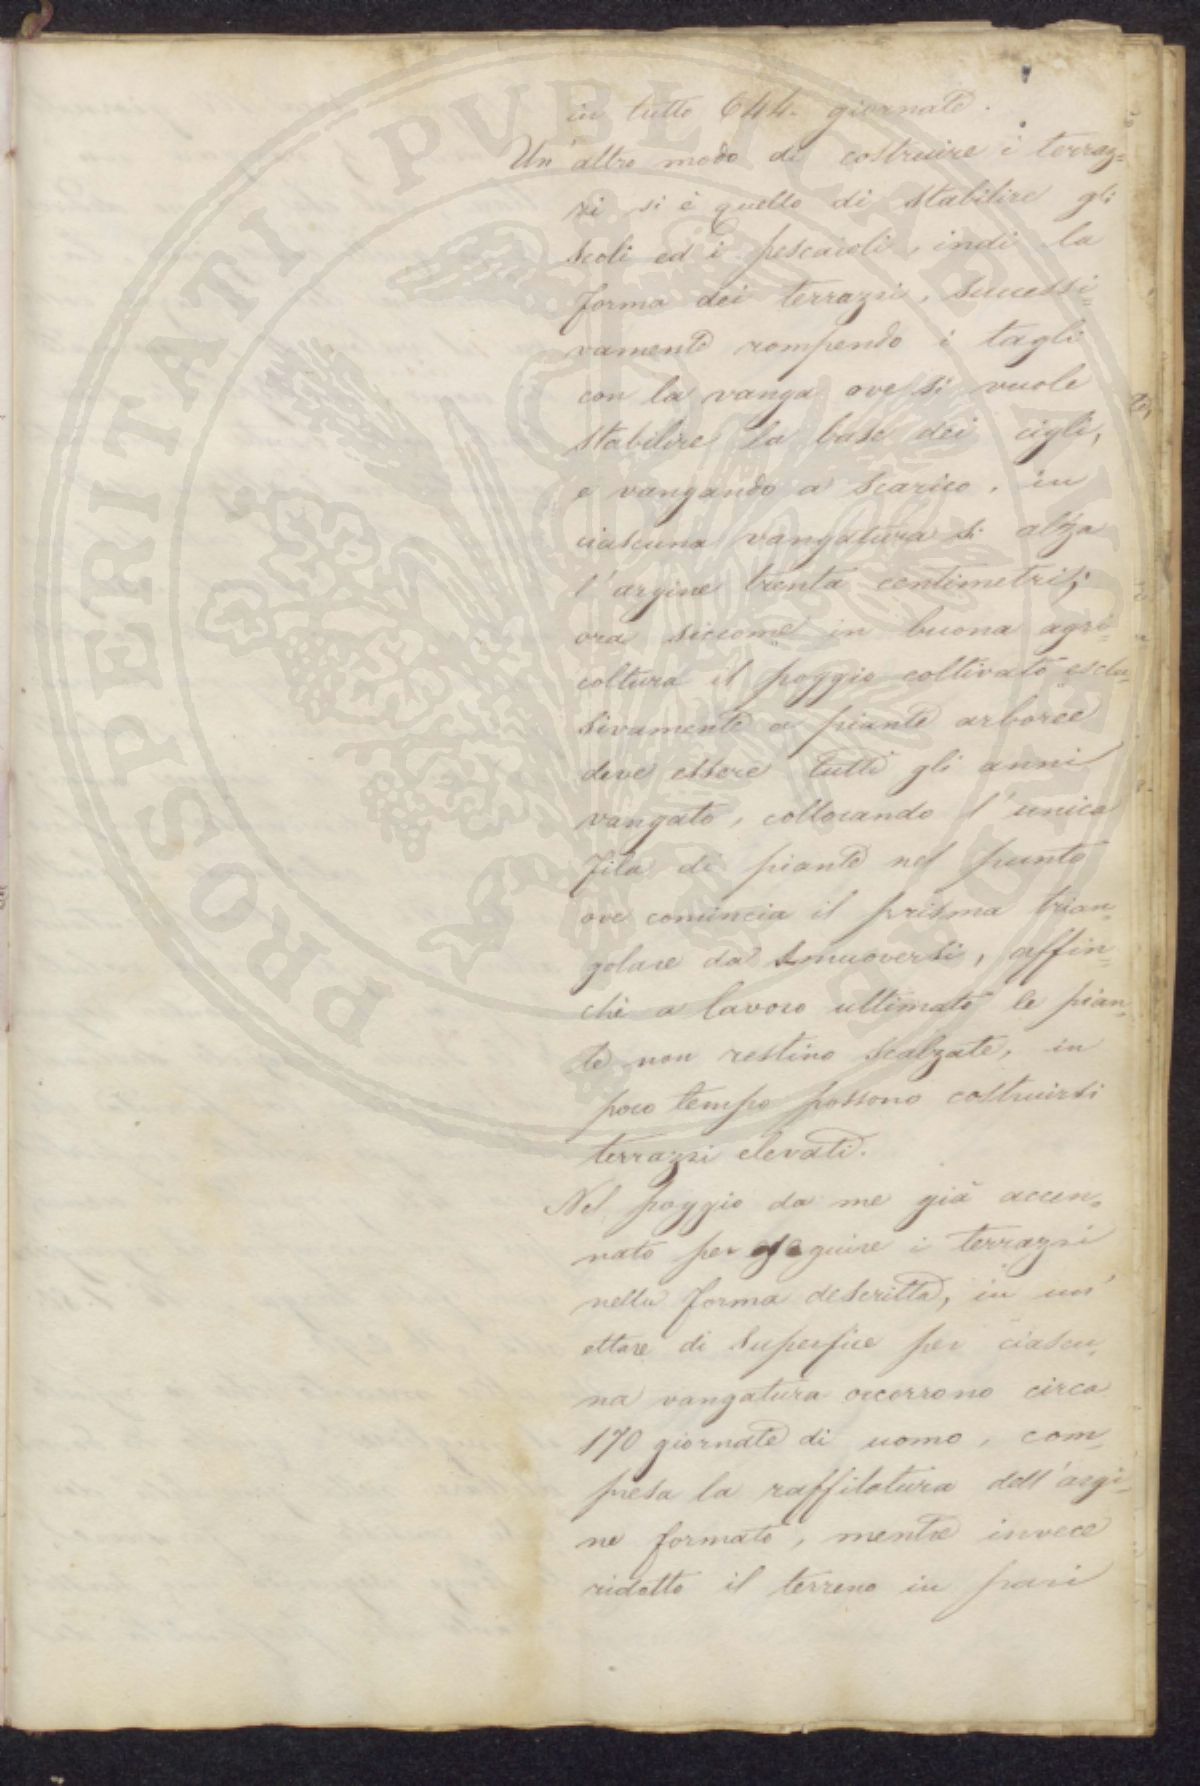 in tutto 644. giornate.
Un'altro modo di costruire i terraz=
zi si è quello di stabilire gli
scoli ed i pescaioli, indi la
forma dei terrazzi, successi=
vamente rompendo i tagli
con la vanga ove si vuole
stabilire la base dei cigli,
e vangando a scarico, in
ciascuna vangatura si alza
l'argine trenta centimetri;
ora siccome in buona agri=
coltura il poggio coltivato esclu=
sivamente a piante arboree
deve essere tutti gli anni
vangato, collocando l'unica
fila di piante nel punto
ove comincia il prisma trian=
golare da smuoversi, affin=
chè a lavoro ultimato le pian=
te non restino scalzate, in
poco tempo possono costruirsi
terrazzi elevati.
Nel poggio da me già accen=
nato per eseguire i terrazzi
nella forma descritta, in un'
ettare di superfice per ciascu=
na vangatura occorrono circa
170 giornate di uomo, com=
presa la raffilatura dell'argi=
ne formato, mentre invece
ridotto il terreno in pari
PROSPERITATI PUBLICAE AUGENDAE